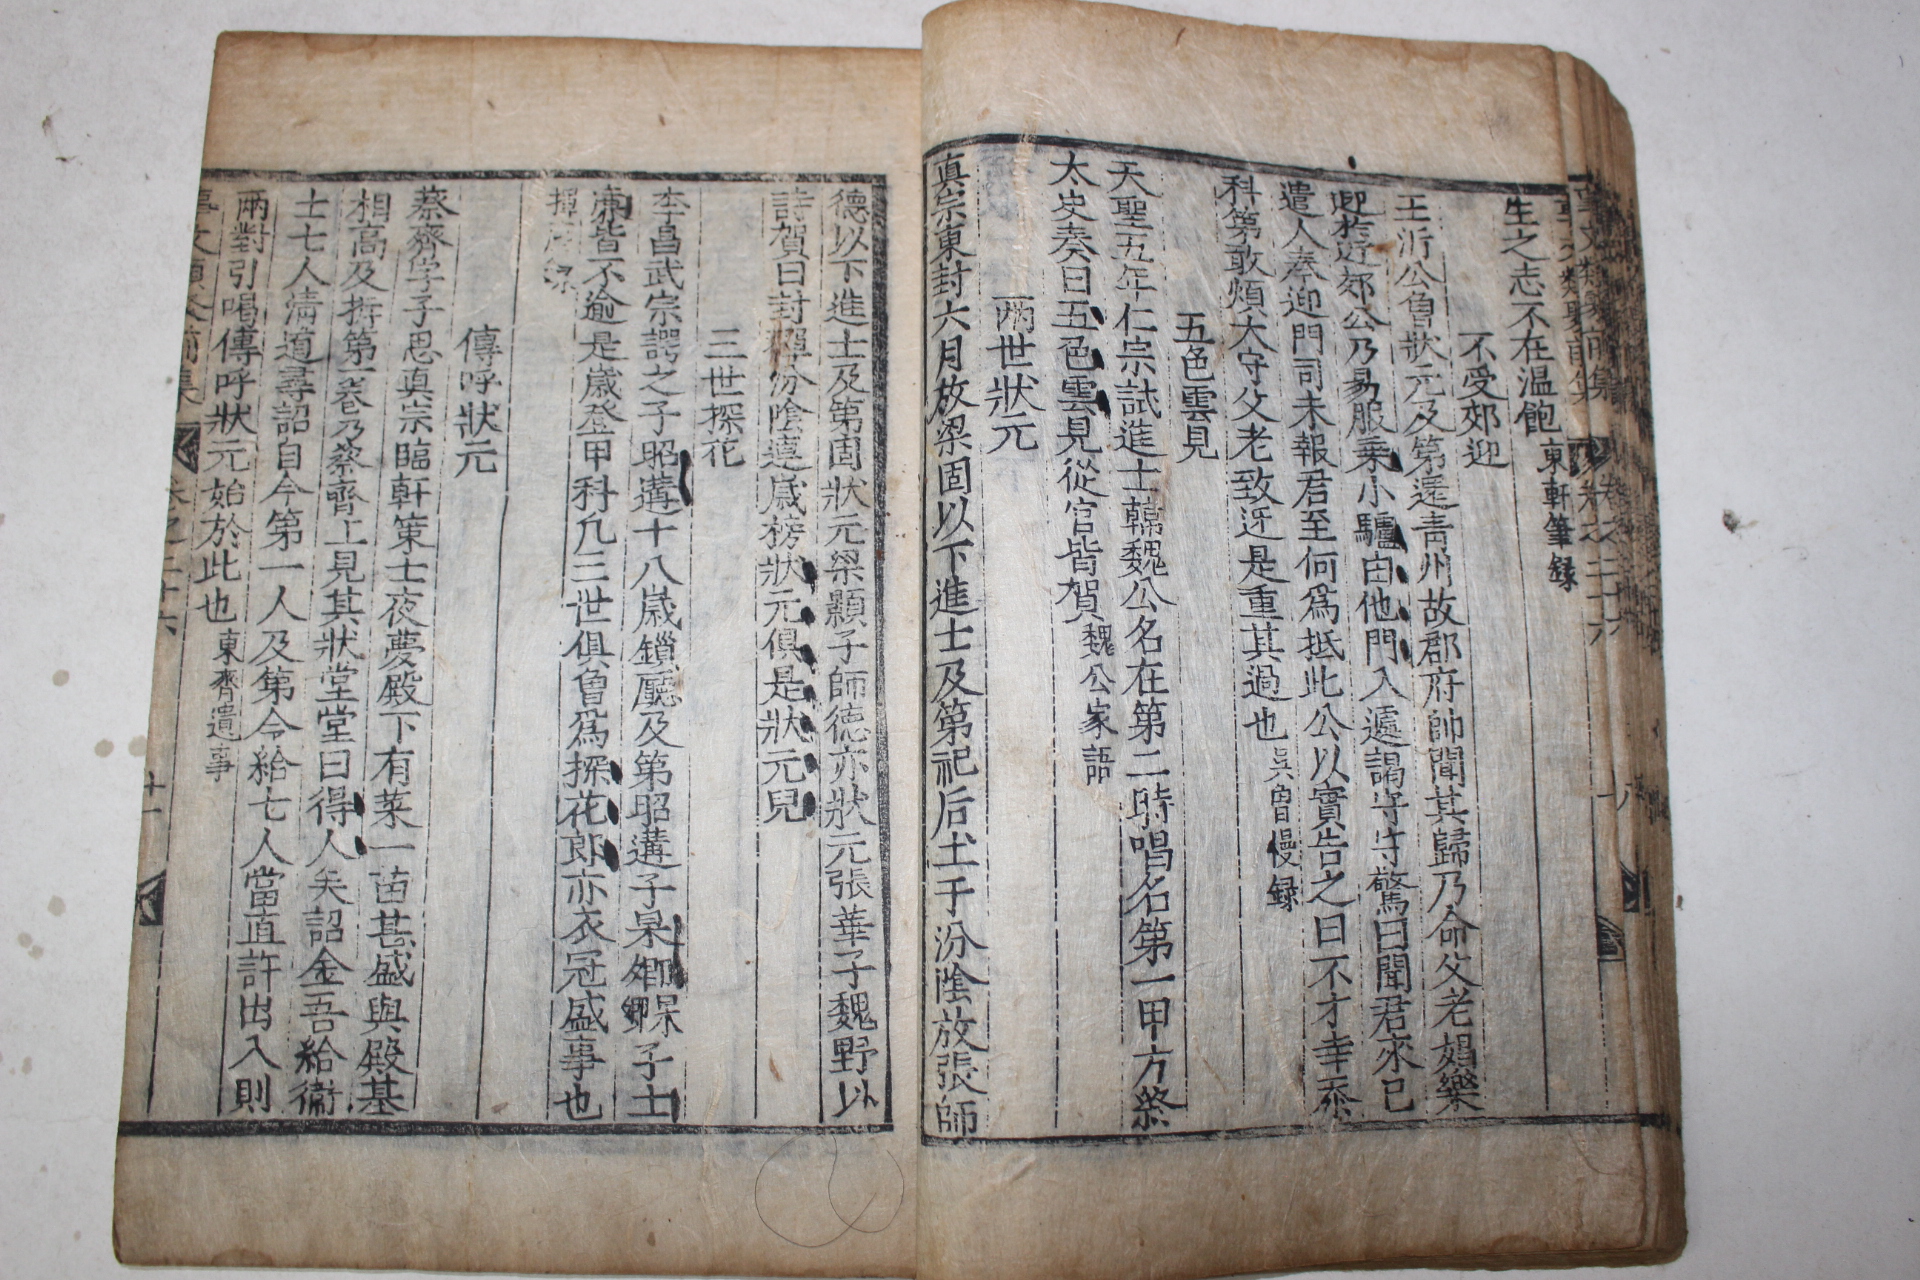 事文類聚前集 卷之二十六
生之志不在温飽東軒筆録
不受郊迎
王沂公曽狀元及第還青州故郡府帥聞其歸乃命父老娼樂
迎於近郊公乃易服乗小驢由他門入遽謁守守驚曰聞君來已
遣人奉迎門司未報君至何爲抵此公以實告之曰不才幸忝
科第敢煩大守父老致迓是重其過也吳曽慢録
五色雲見
天聖五年仁宗試進士韓魏公名在第二時唱名第一甲方終
太史奏曰五色雲見從官皆賀魏公家語
兩世狀元
真宗東封六月放梁固以下進士及第祀后土于汾陰放張師
德以下進士及第固狀元梁顥子師徳亦狀元張華子魏野以
詩賀曰封禪汾陰連歲榜狀元俱是狀元兒
三世探花
李昌武宗諤之子昭遘十八歲鎖廳及第昭遘子杲卿杲卿子士
廉皆不逾是歲登甲科凡三世俱曾爲探花郎亦衣冠盛事也
揮麈錄
傳呼狀元
蔡齊字子思真宗臨軒策士夜夢殿下有菜一苗甚盛與殿基
相高及拆第一卷乃蔡齊上見其狀堂堂曰得人矣詔金吾給衛
士七人清道尋詔自今第一人及第今給七人當直許出入則
兩對引喝傳呼狀元始於此也東齊遺事
事文類聚前集 卷之二十六 十一